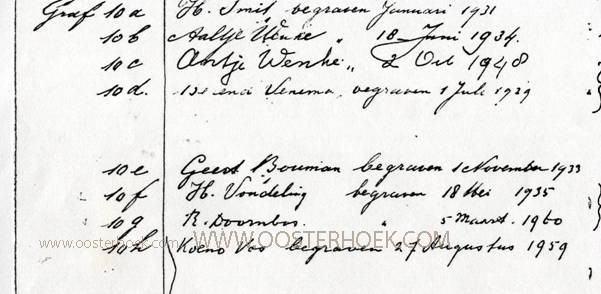 Graf 10a H. Smit begraven Januari 1931
10b Aaltje Wenke " 18 Juni 1934.
10c Antje Wenke " 2 Oct 1948
10d. Venema, begraven 1 Juli 1929
10e Geert Bouman begraven 1 November 1933
10f H. Vondeling begraven 18 Mei 1935
10g R. Doornbos. " 5 Maart. 1960
10h Koeno Vos begraven 27 Augustus 1959
www.oosterhoek.com
WWW.OOSTERHOEK.COM